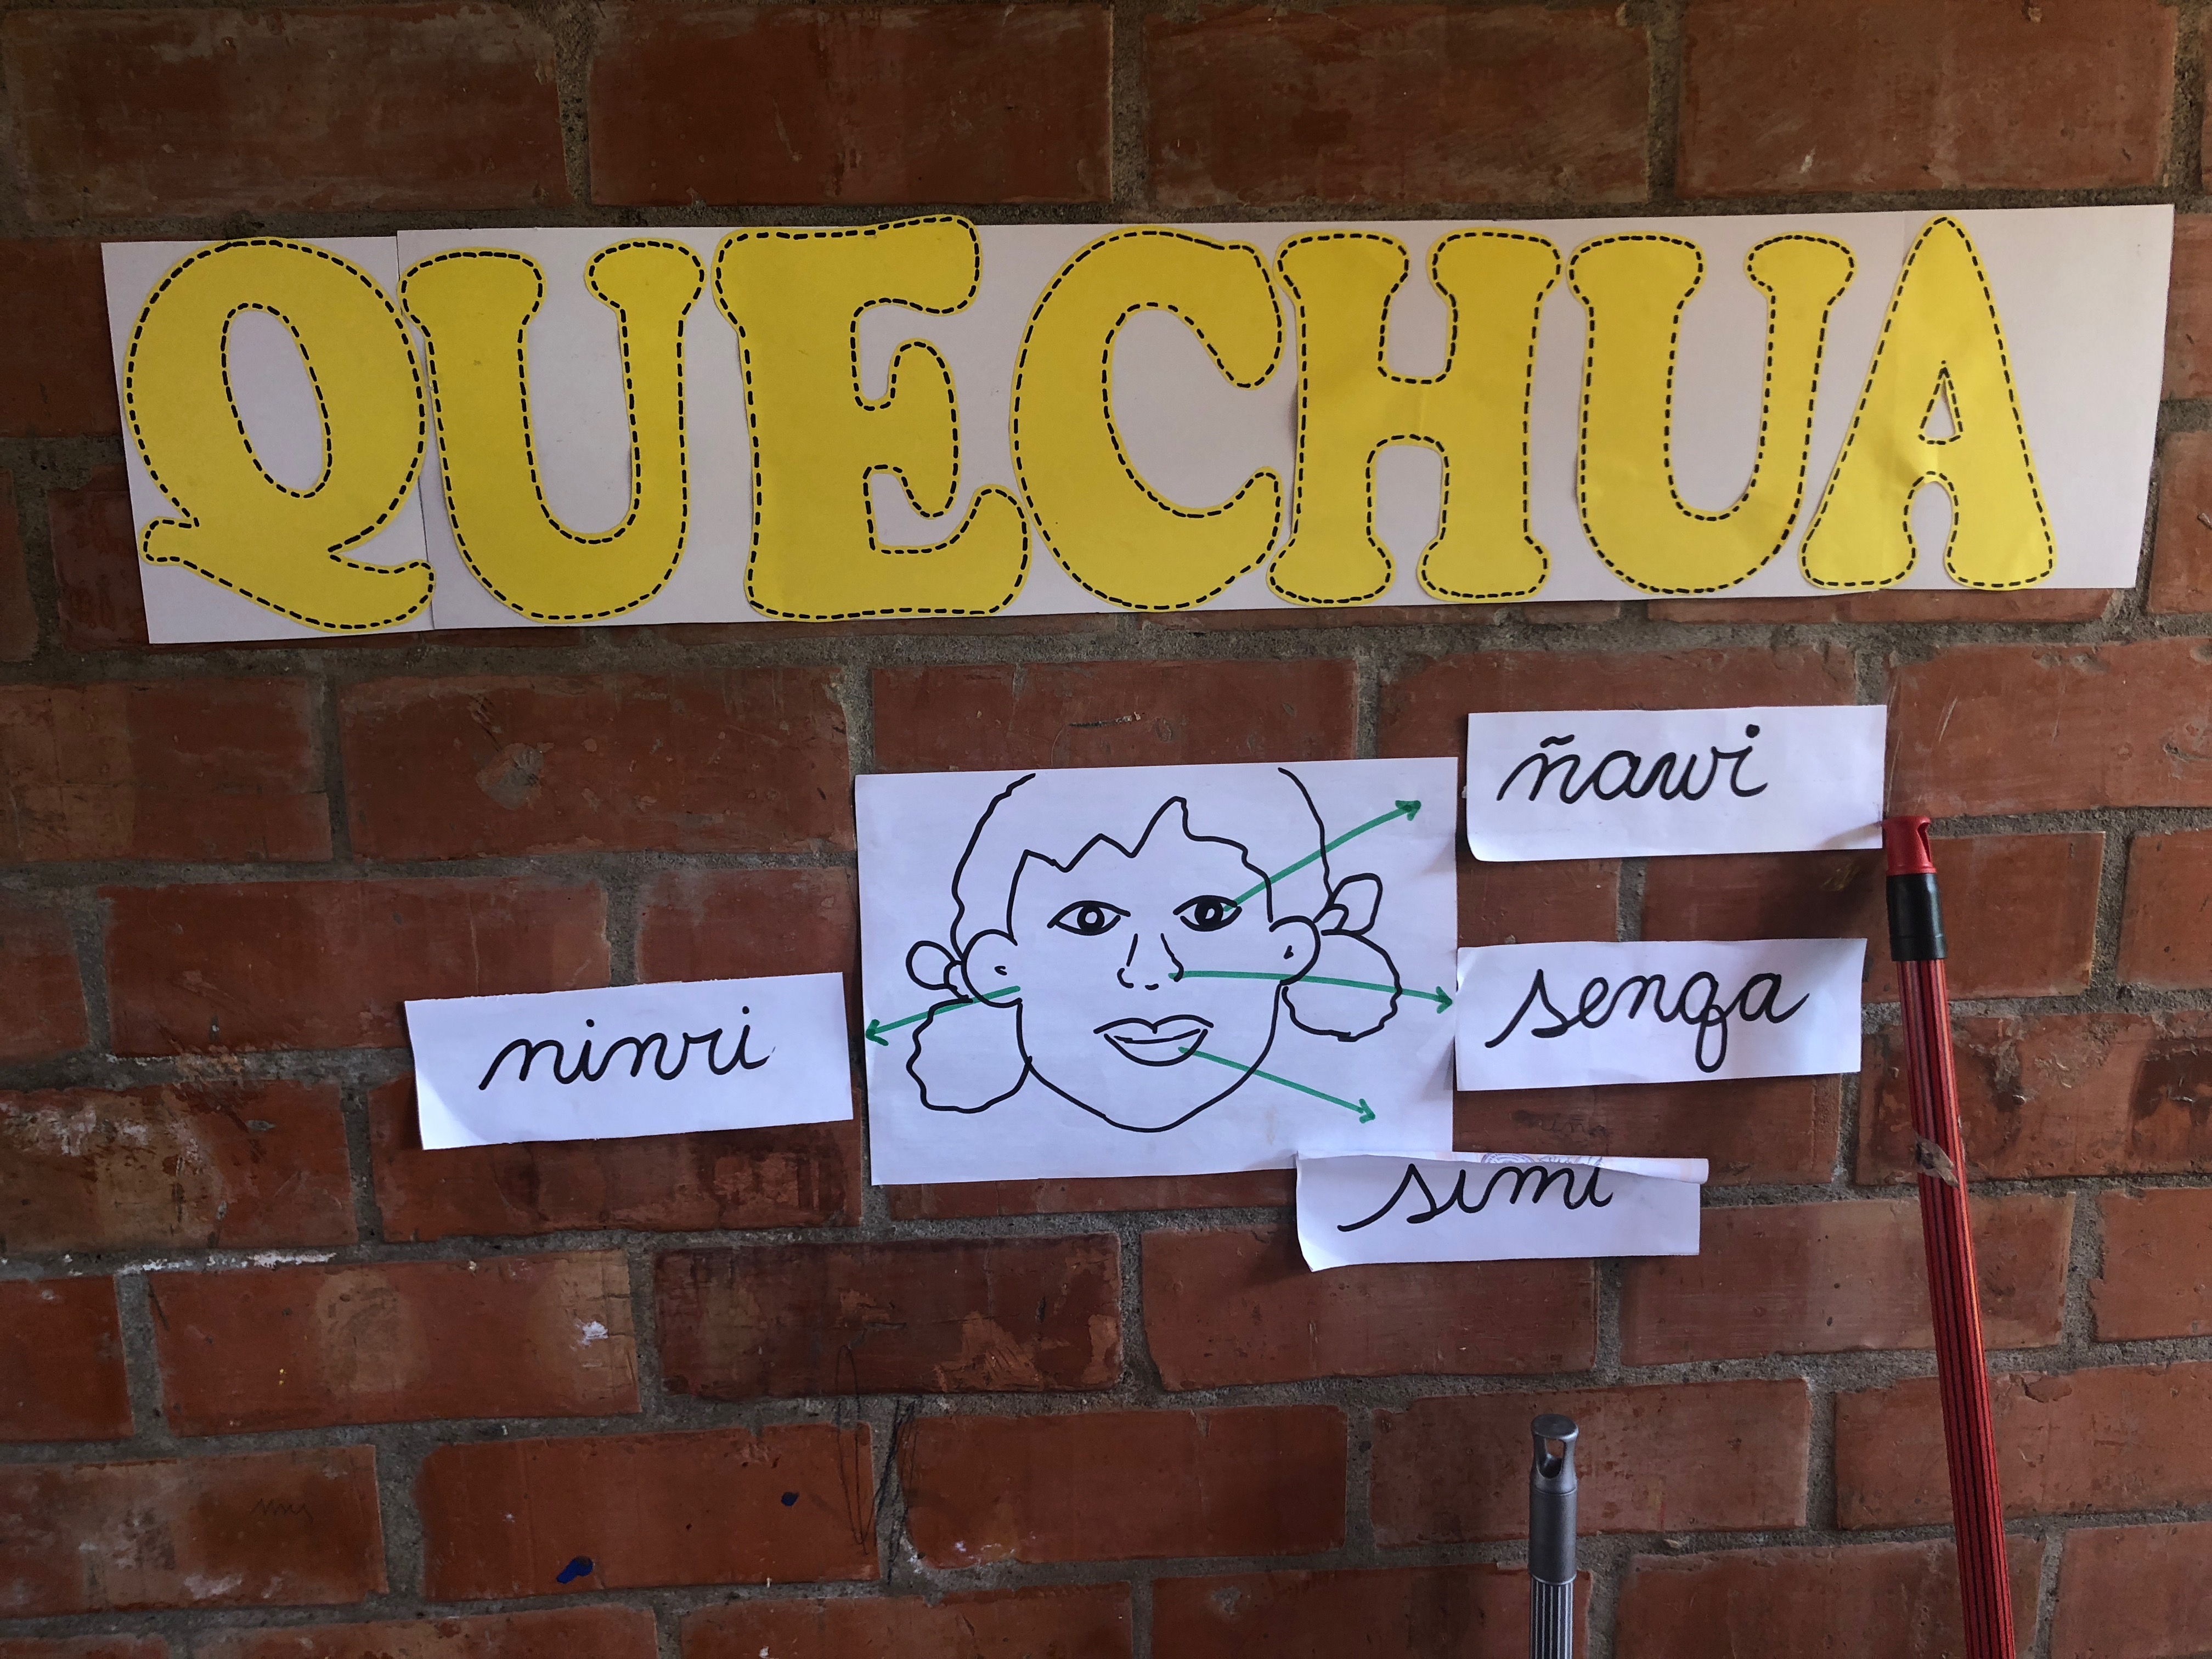 QUECHUA
ñawi
senqa
ninri
simi